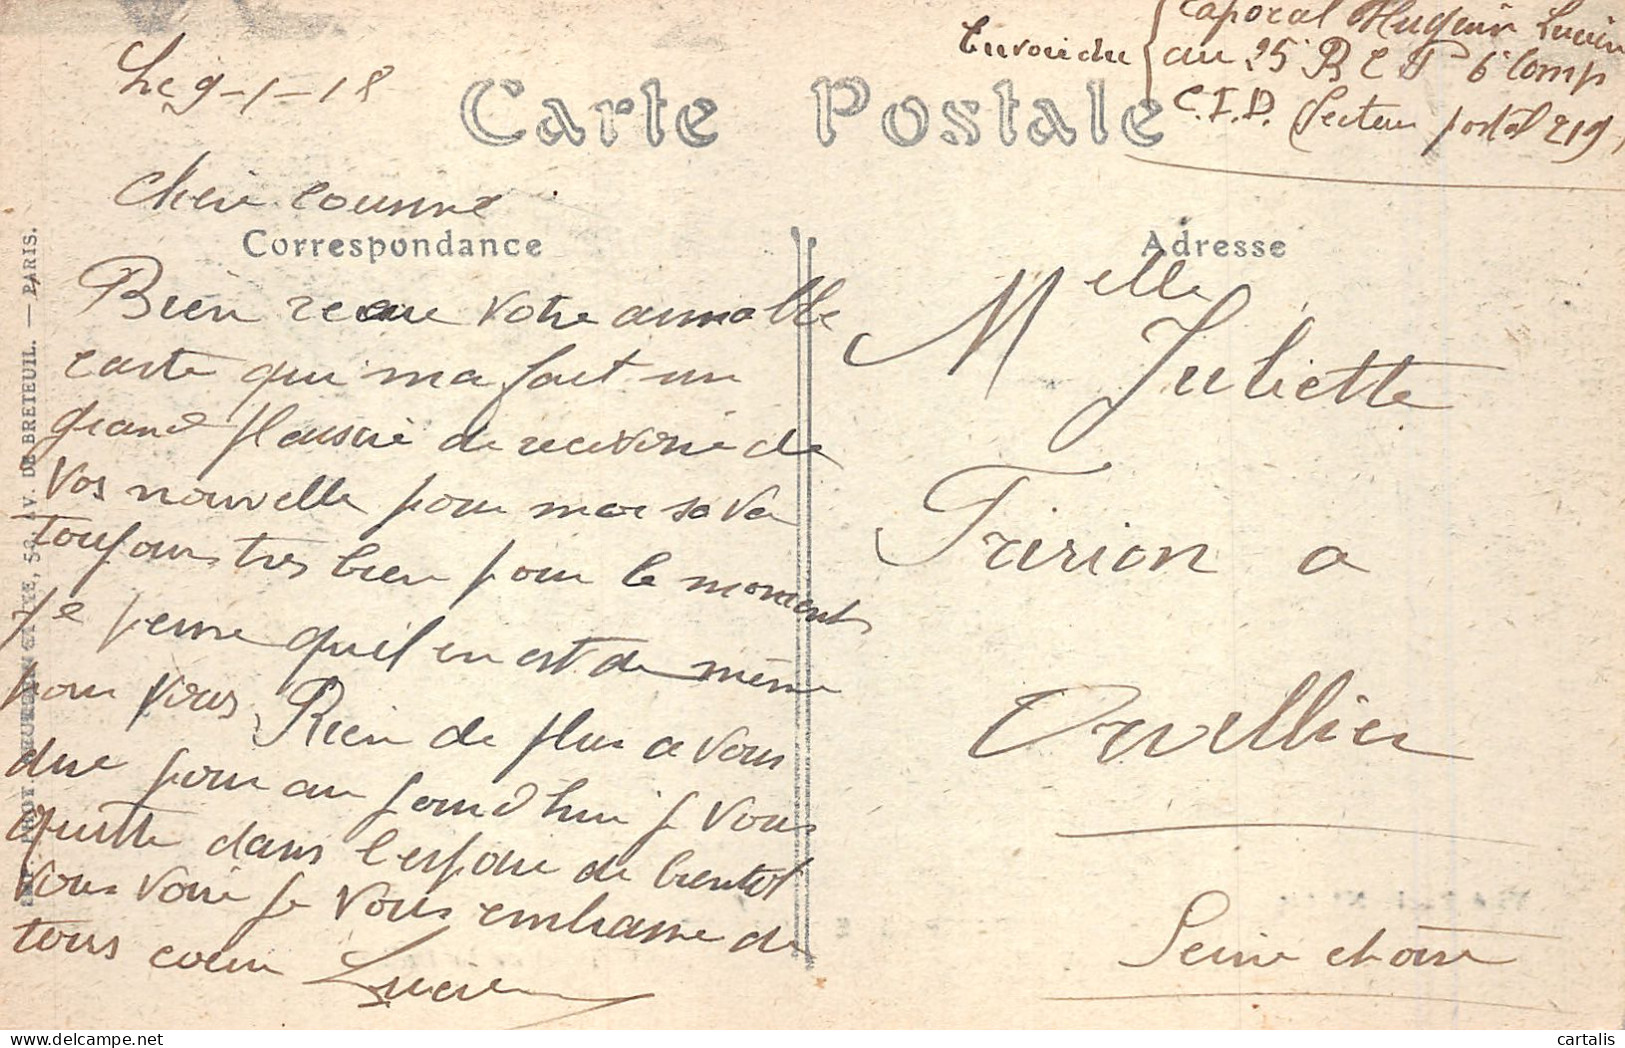 Caporal Huguin Lucien
Envoi du au 25 B C P 6e Comp
C.I.D. Secteur postal 219
Le 9-1-18
Carte Postale
Chère cousine
Correspondance
Adresse
Bien recue votre aimable
carte qui ma fait un
grand plaisir de recevoir de
vos nouvelle pour moi sa va
toujours tres bien pour le moment
Je pense quil en est de même
pour vous Rien de plus a vous
dire pour au jourd hui je vous
quitte dans l'espoir de bientot
vous voir je vous embrasse de
tous coeur Lucien
Melle
Juliette
Fririon a
Orvillier
Seine et oise
PHOT. NEURDEIN ET CIE, 52, AV. DE BRETEUIL. — PARIS.
cartalis